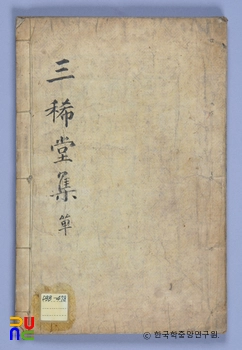 三稀堂集 單
ⓒ 한국학중앙연구원.